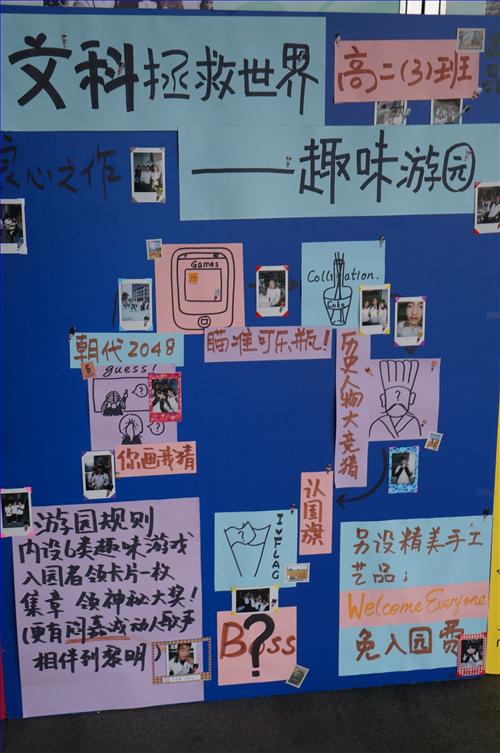 文科拯救世界
高二(3)班
良心之作
——趣味游园
Games
Collination.
Coke
朝代2048
瞄准可乐瓶!
guess!
?
?
历史人物大竞猜
?
你画我猜
认国旗
游园规则
内设6类趣味游戏
入园者领卡片一枚
集章 领神秘大奖!
(更有闵嘉成动人歌声
相伴到黎明)
?
IN FLAG
Boss
?
另设精美手工
艺品;
Welcome Everyone
免入园费